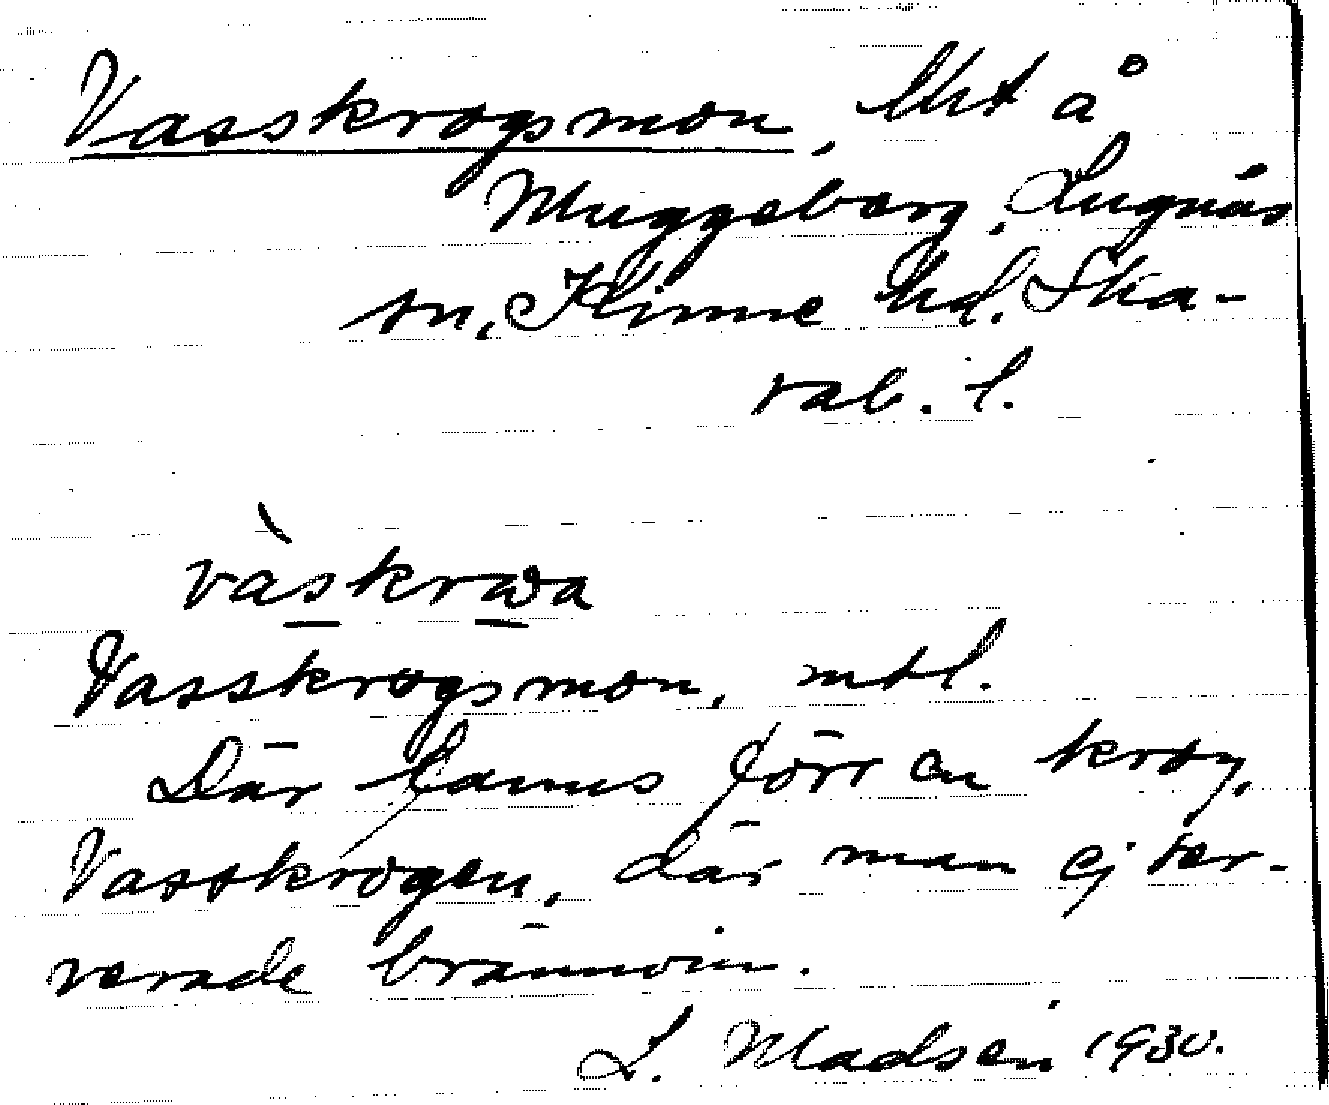 Vasskrogsmon, lht å
Muggeberg, Lugnås
sn, Kinne hd. Ska-
rab. l.
vàskrωa
Vasskrogsmon, mtl.
Där fanns förr en krog,
Vasskrogen, där man ej ser-
verade brännvin.
L. Madsén 1930.